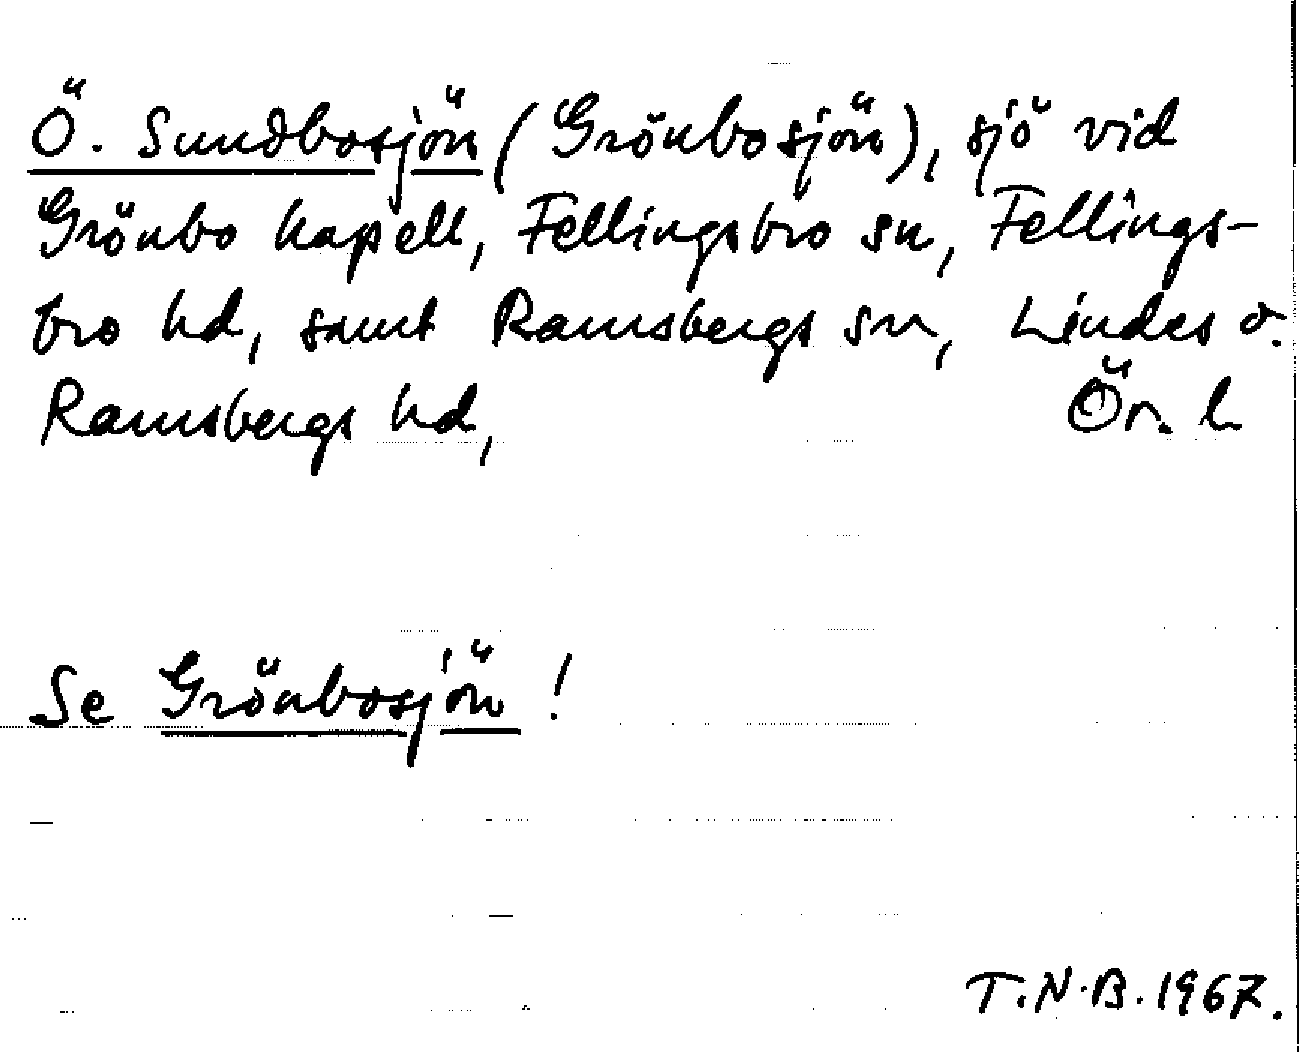 Ö. Sundbosjön (Grönbosjön), sjö vid
Grönbo kapell, Fellingsbro sn, Fellings-
bro hd, samt Ramsbergs sn, Lindes o.
Ramsbergs hd, Ör. l.
Se Grönbosjön!
T.N.B. 1967.